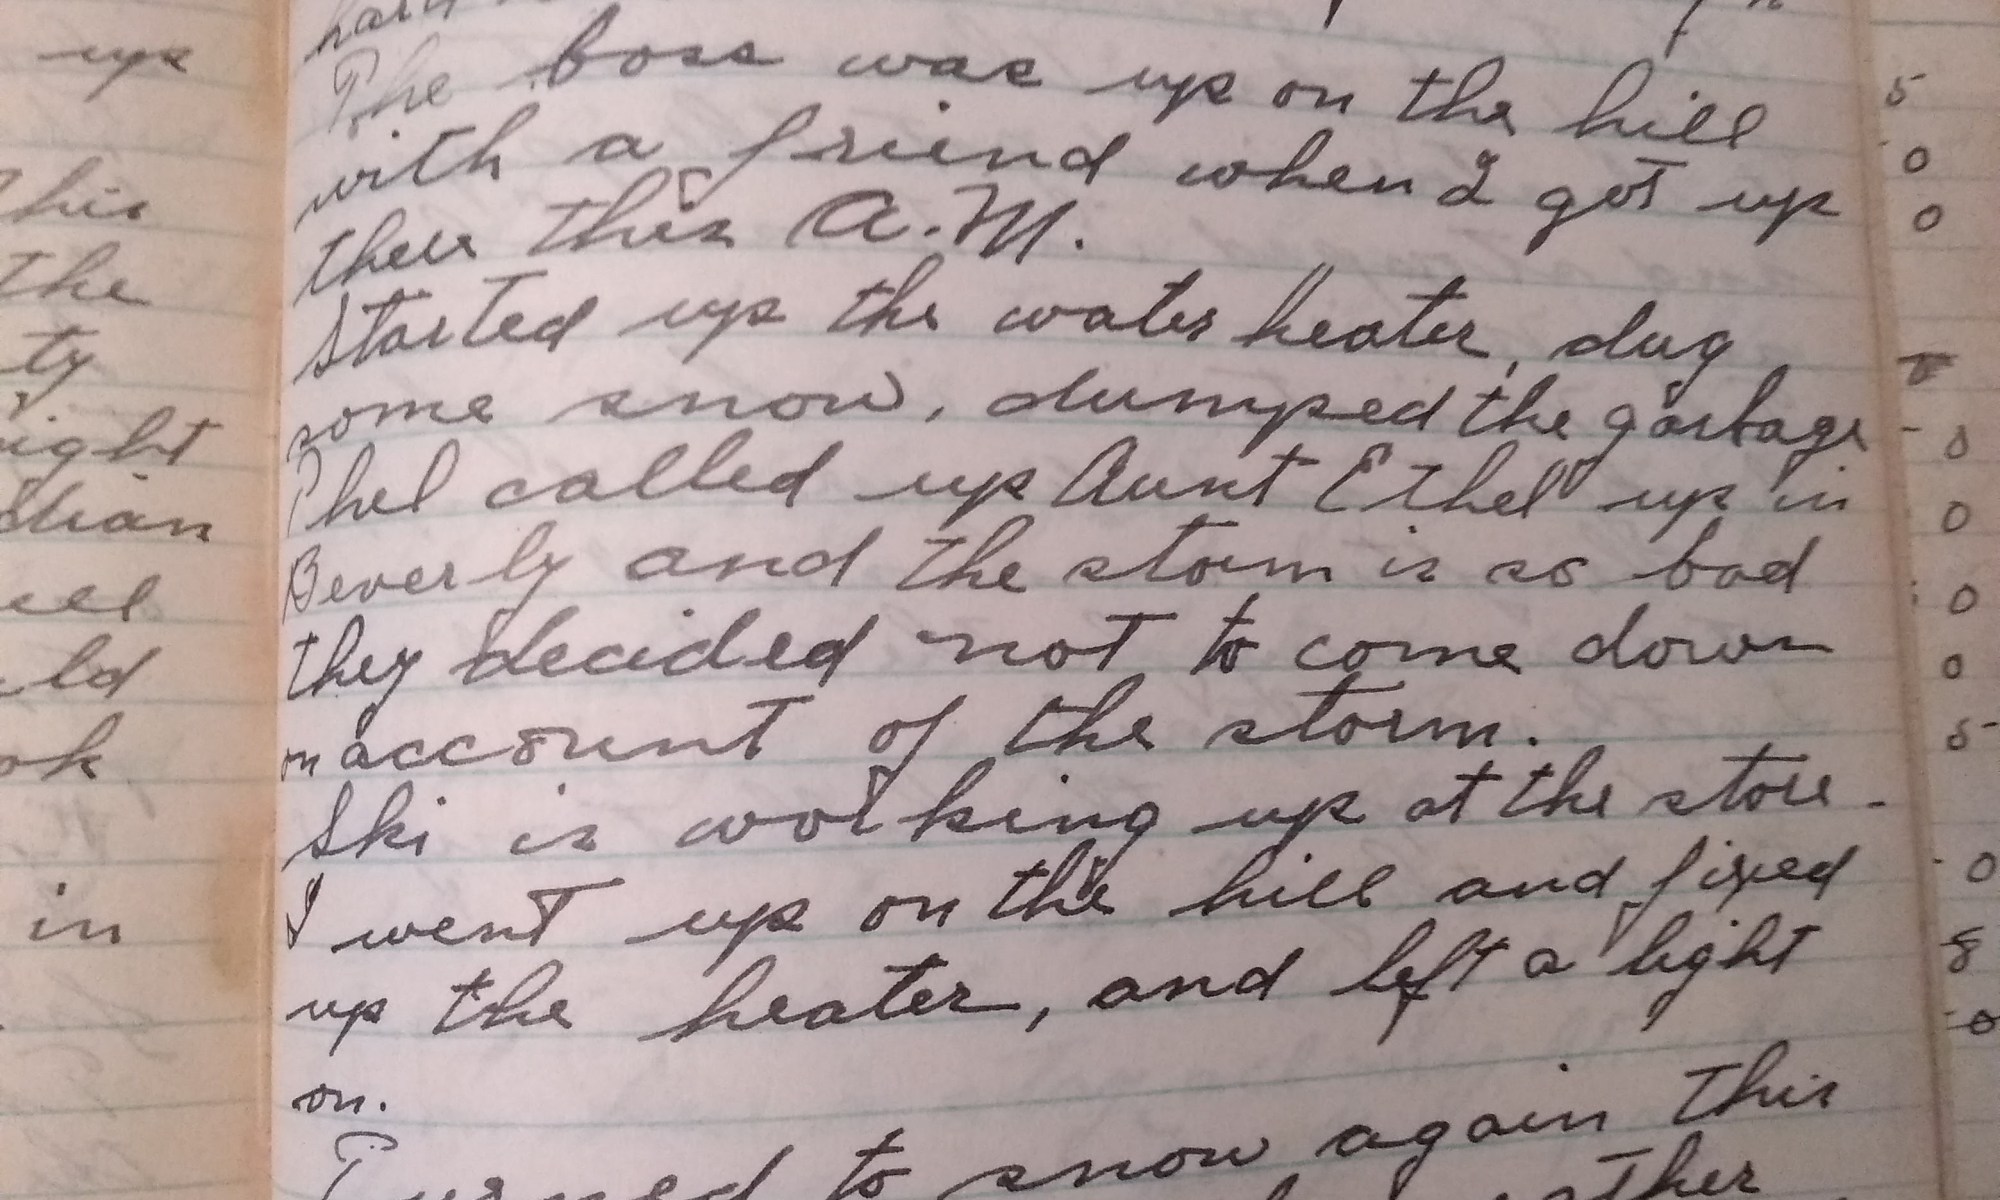 ups
The boss was up on the hill
with a friend when I got up
there this A.M.
Started up the water heater, dug
some snow, dumped the garbage
Phel called up Aunt Ethel up in
Beverly and the storm is so bad
they decided not to come down
on account of the storm.
Ski is working up at the store.
I went up on the hill and fixed
up the heater, and left a light
on.
Turned to snow again this
his
the
ty
ight
dian
eed
ld
ok
in
5
0
0
0
0
0
0
5
0
8
0